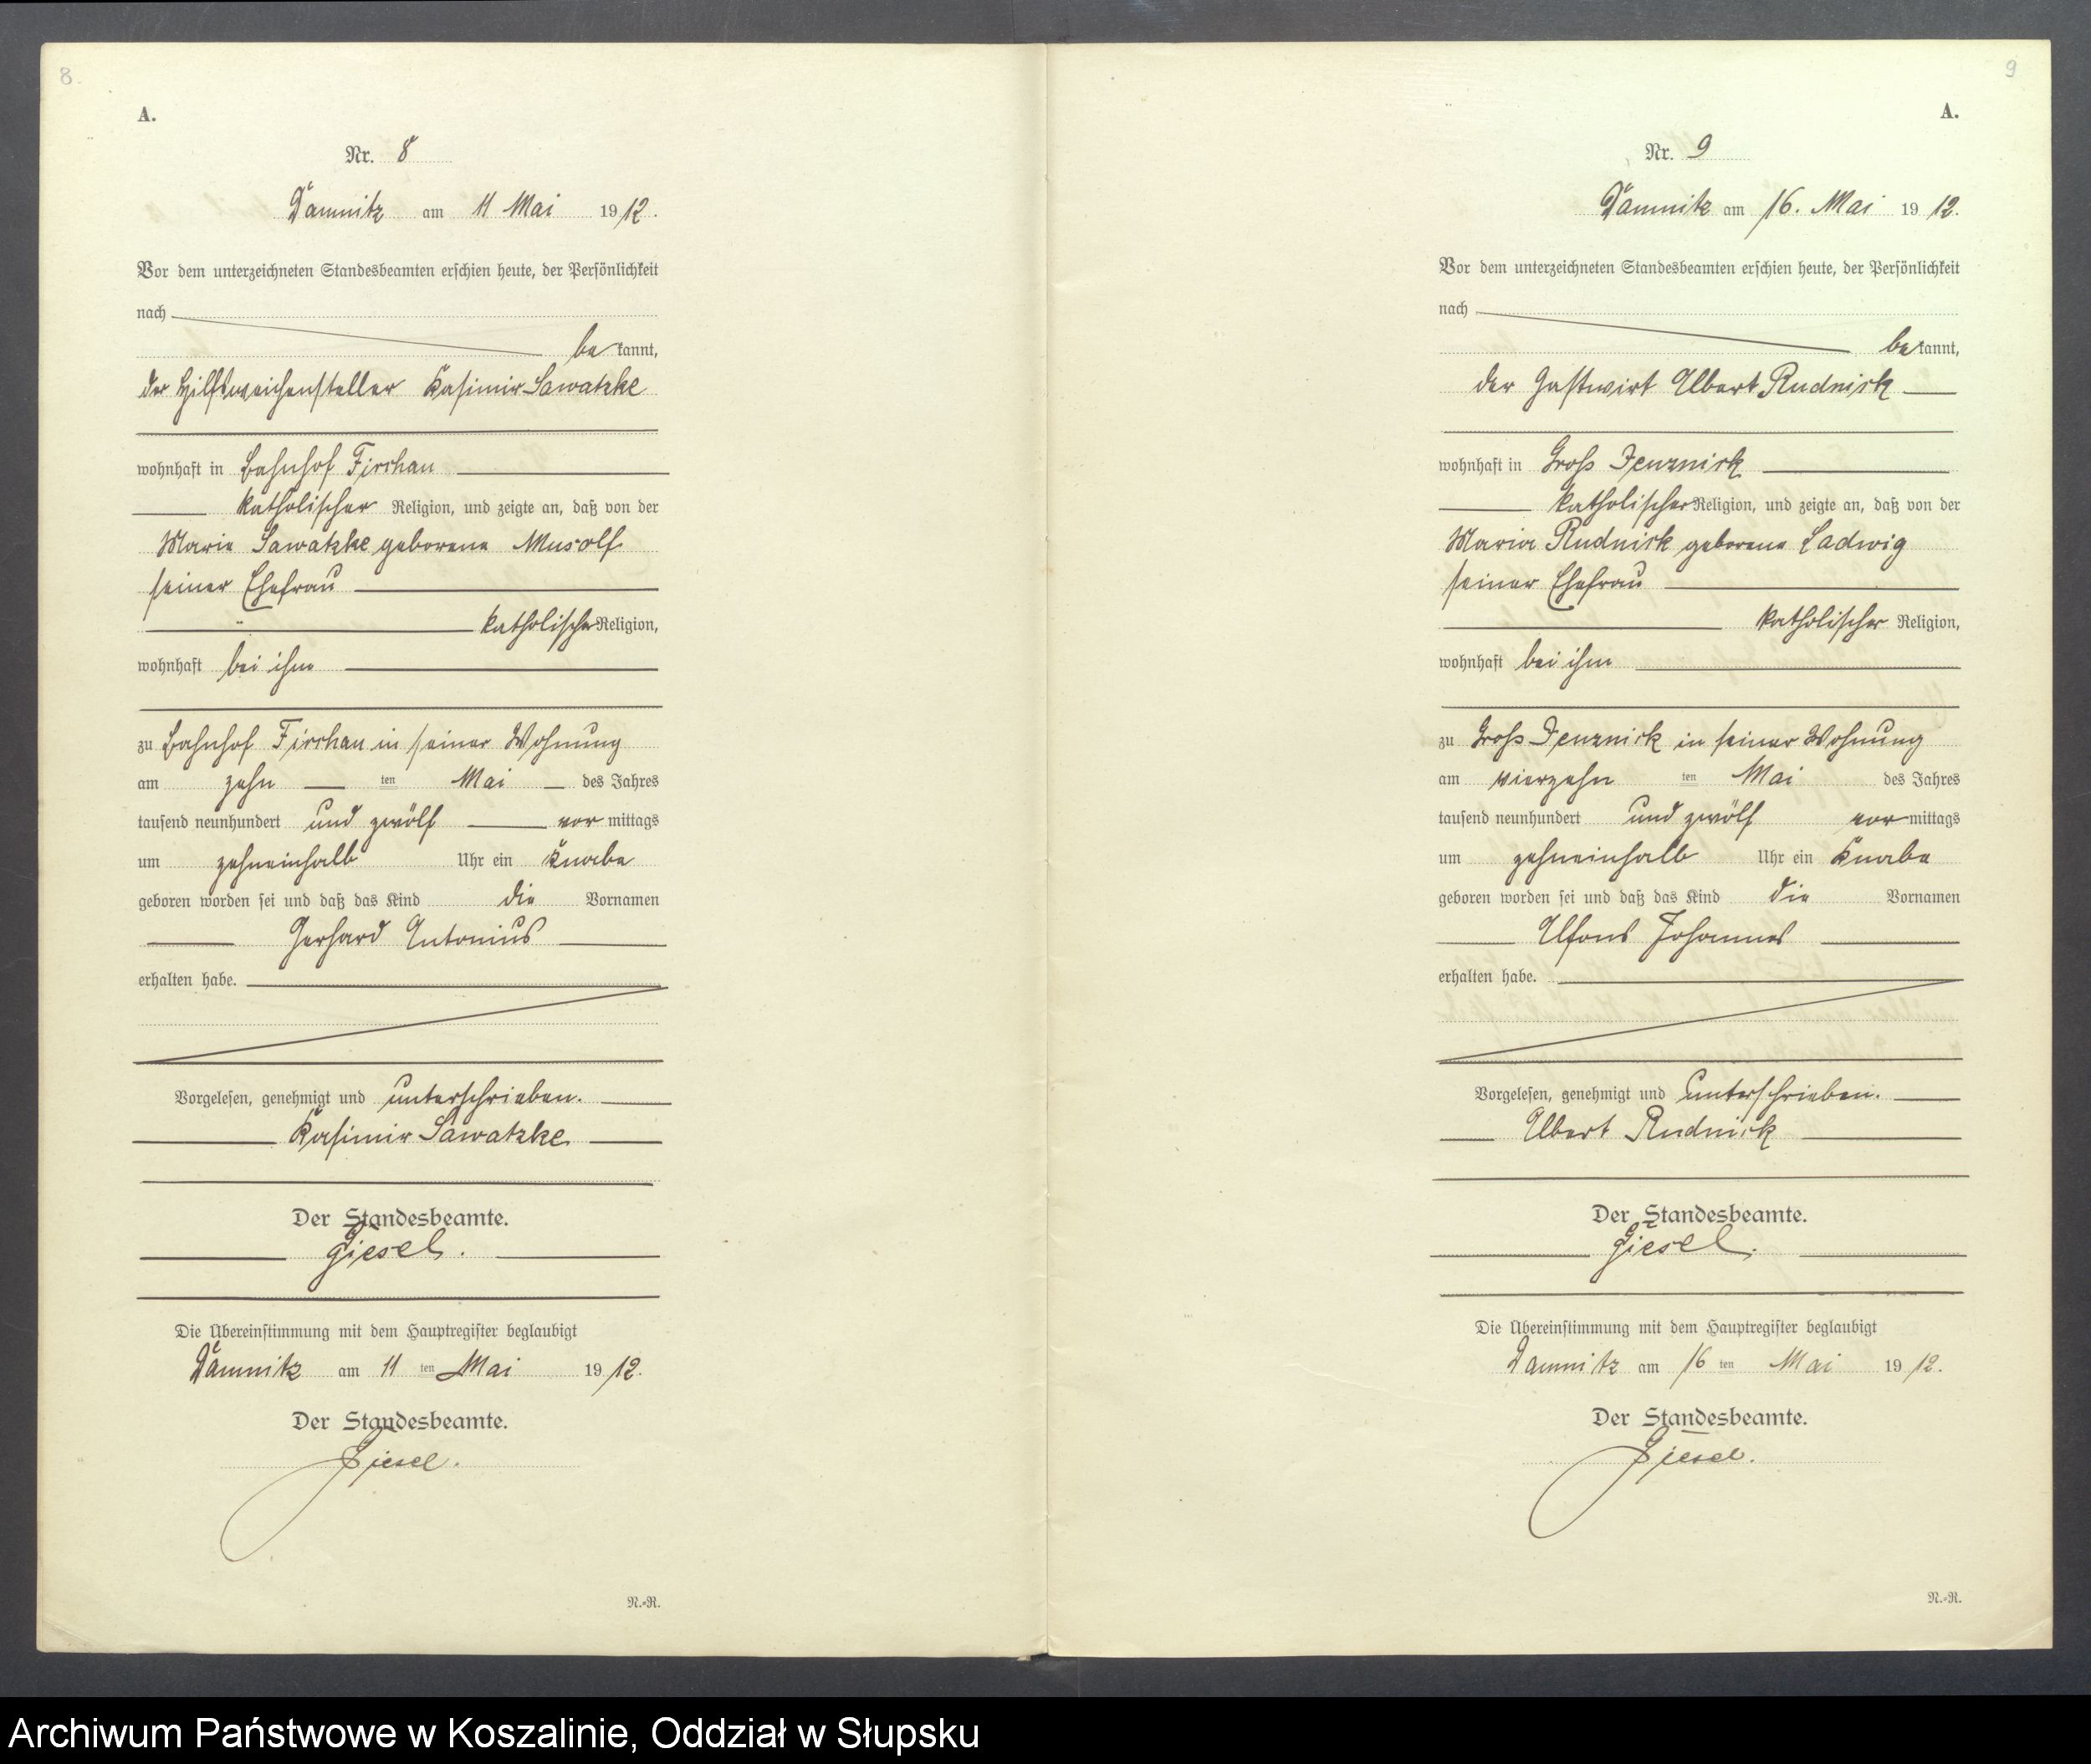 8.
A.
Nr. 8
Damnitz am 11 Mai 1912.
Vor dem unterzeichneten Standesbeamten erschien heute, der Persönlichkeit
nach
bekannt,
der Hilfsweichensteller Kasimir Sawatzke
wohnhaft in Bahnhof Firchau
katholischer Religion, und zeigte an, daß von der
Marie Sawatzke geborene Musolf
seiner Ehefrau
katholischer Religion,
wohnhaft bei ihm
zu Bahnhof Firchau in seiner Wohnung
am zehn ten Mai des Jahres
tausend neunhundert und zwölf vor mittags
um zehneinhalb Uhr ein Knabe
geboren worden sei und daß das Kind die Vornamen
Gerhard Antonius
erhalten habe.
Vorgelesen, genehmigt und unterschrieben.
Kasimir Sawatzke
Der Standesbeamte.
Giesel.
Die Übereinstimmung mit dem Hauptregister beglaubigt
Damnitz am 11 ten Mai 1912.
Der Standesbeamte.
Giesel.
N.-R.
9
A.
Nr. 9
Damnitz am 16. Mai 1912.
Vor dem unterzeichneten Standesbeamten erschien heute, der Persönlichkeit
nach
bekannt,
der Gastwirt Albert Rudnick
wohnhaft in Groß Jenznick
katholischer Religion, und zeigte an, daß von der
Maria Rudnick geborene Ladwig
seiner Ehefrau
katholischer Religion,
wohnhaft bei ihm
zu Groß Jenznick in seiner Wohnung
am vierzehn ten Mai des Jahres
tausend neunhundert und zwölf vor mittags
um zehneinhalb Uhr ein Knabe
geboren worden sei und daß das Kind die Vornamen
Alfons Johannes
erhalten habe.
Vorgelesen, genehmigt und unterschrieben.
Albert Rudnick
Der Standesbeamte.
Giesel.
Die Übereinstimmung mit dem Hauptregister beglaubigt
Damnitz am 16 ten Mai 1912.
Der Standesbeamte.
Giesel.
N.-R.
Archiwum Państwowe w Koszalinie, Oddział w Słupsku